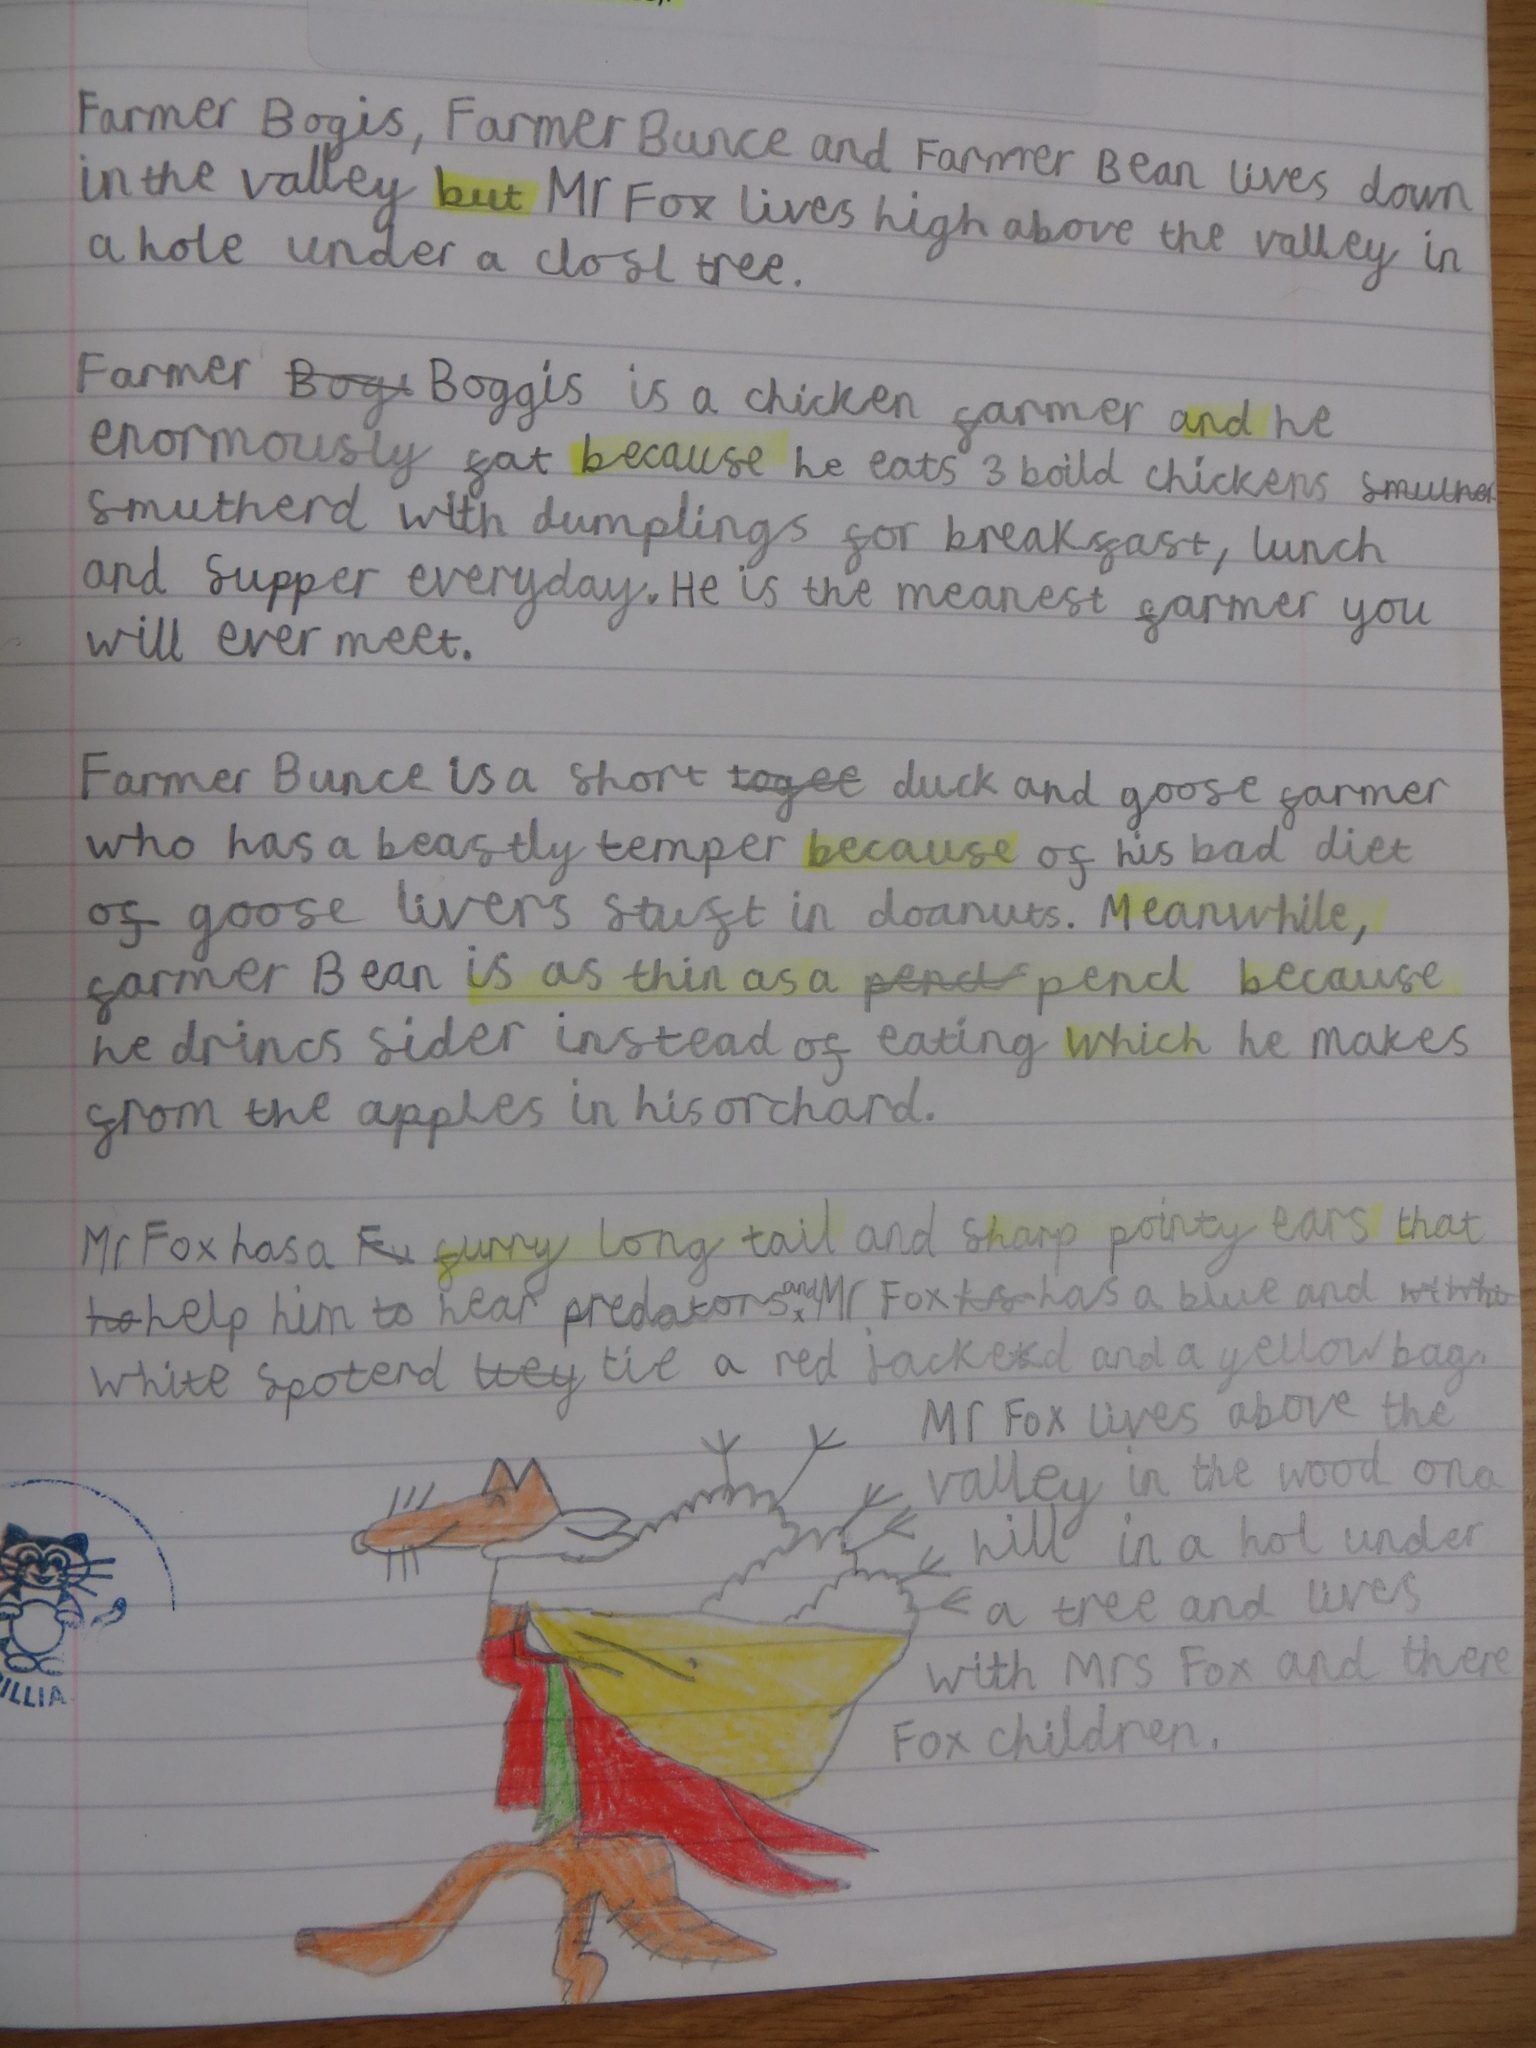 Farmer Bogis, Farmer Bunce and Farmer Bean lives down
in the valley but Mr Fox lives high above the valley in
a hole under a closl tree.
Farmer Bogi Boggis is a chicken farmer and he
enormously fat because he eats 3 boild chickens smuther
smutherd with dumplings for breakfast, lunch
and supper everyday. He is the meanest farmer you
will ever meet.
Farmer Bunce is a short duck and goose farmer
who has a beastly temper because of his bad diet
of goose livers stuft in doanuts. Meanwhile,
farmer Bean is as thin as a pencl pencl because
he drincs sider instead of eating which he makes
from the apples in his orchard.
Mr Fox has a Fu furry long tail and sharp pointy ears that
to help him to hear predators and Mr Fox has a blue and
white spoterd tie a red jacked and a yellow bag.
Mr Fox lives above the
valley in the wood on a
hill in a hol under
a tree and lives
with Mrs Fox and there
Fox children.
ILLIA